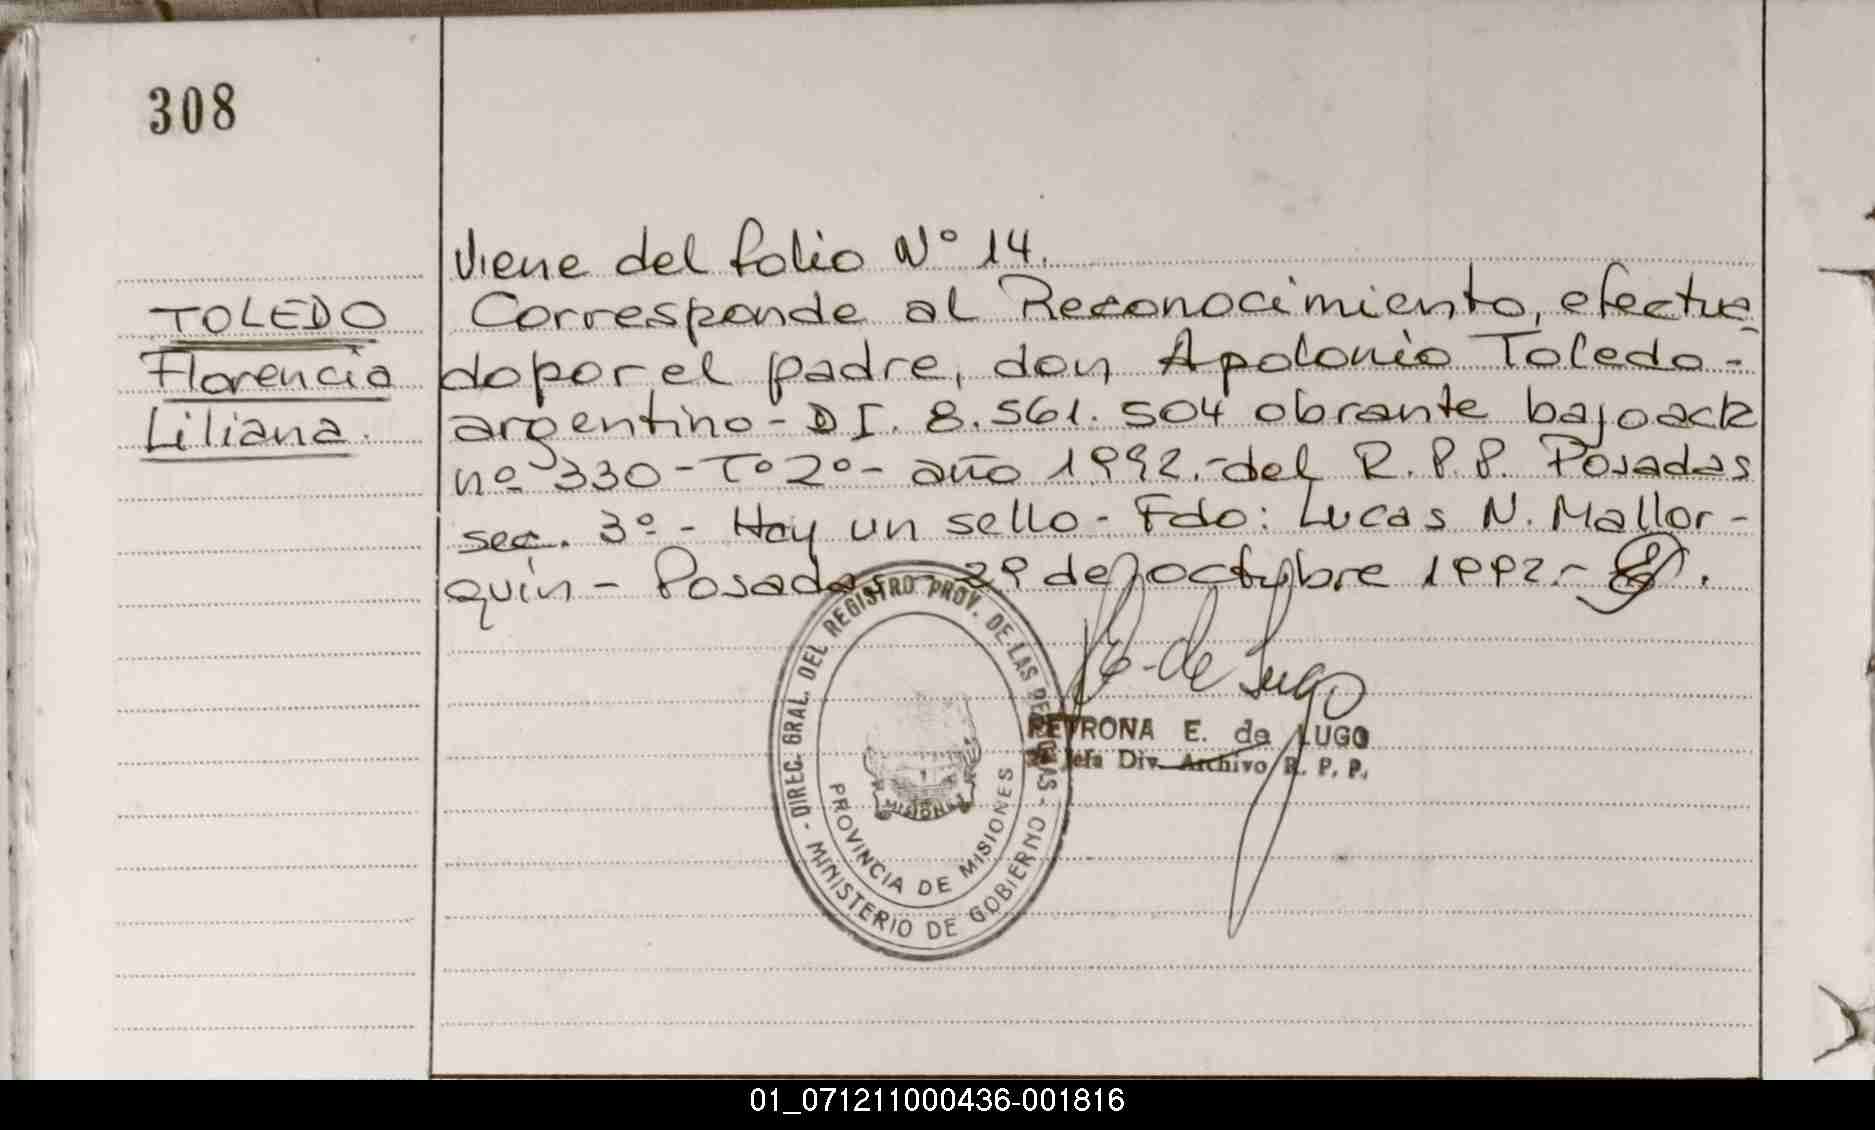 308
TOLEDO
Florencia
Liliana.
Viene del folio Nº 14.
Corresponde al Reconocimiento, efectua
do por el padre, don Apolonio Toledo -
argentino - DI. 8.561.504 obrante bajo acta
nº 330 - Tº 2º - año 1992.- del R.P.P. Posadas
sec. 3º - Hay un sello - Fdo: Lucas N. Mallor-
quín - Posadas 29 de octubre 1992.-
E. de Lugo
PETRONA E. de LUGO
Jefa Div. Archivo R. P. P.
- DIREC. GRAL. DEL REGISTRO PROV. DE LAS PERSONAS -
MINISTERIO DE GOBIERNO
PROVINCIA DE MISIONES
MISIONES
01_071211000436-001816